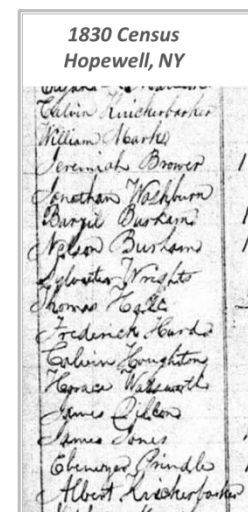 1830 Census
Hopewell, NY
Calvin Knickerbacker
William Marks
Jeremiah Brower 1
Jonathan Washburn
Burham 1
Nelson Burham 1
Sylvester Wright
Thomas
Frederick Hurd
Calvin Houghton
Horace Wadsworth
James
James Jones
Ebenezer Prindle
Albert Knickerbacker